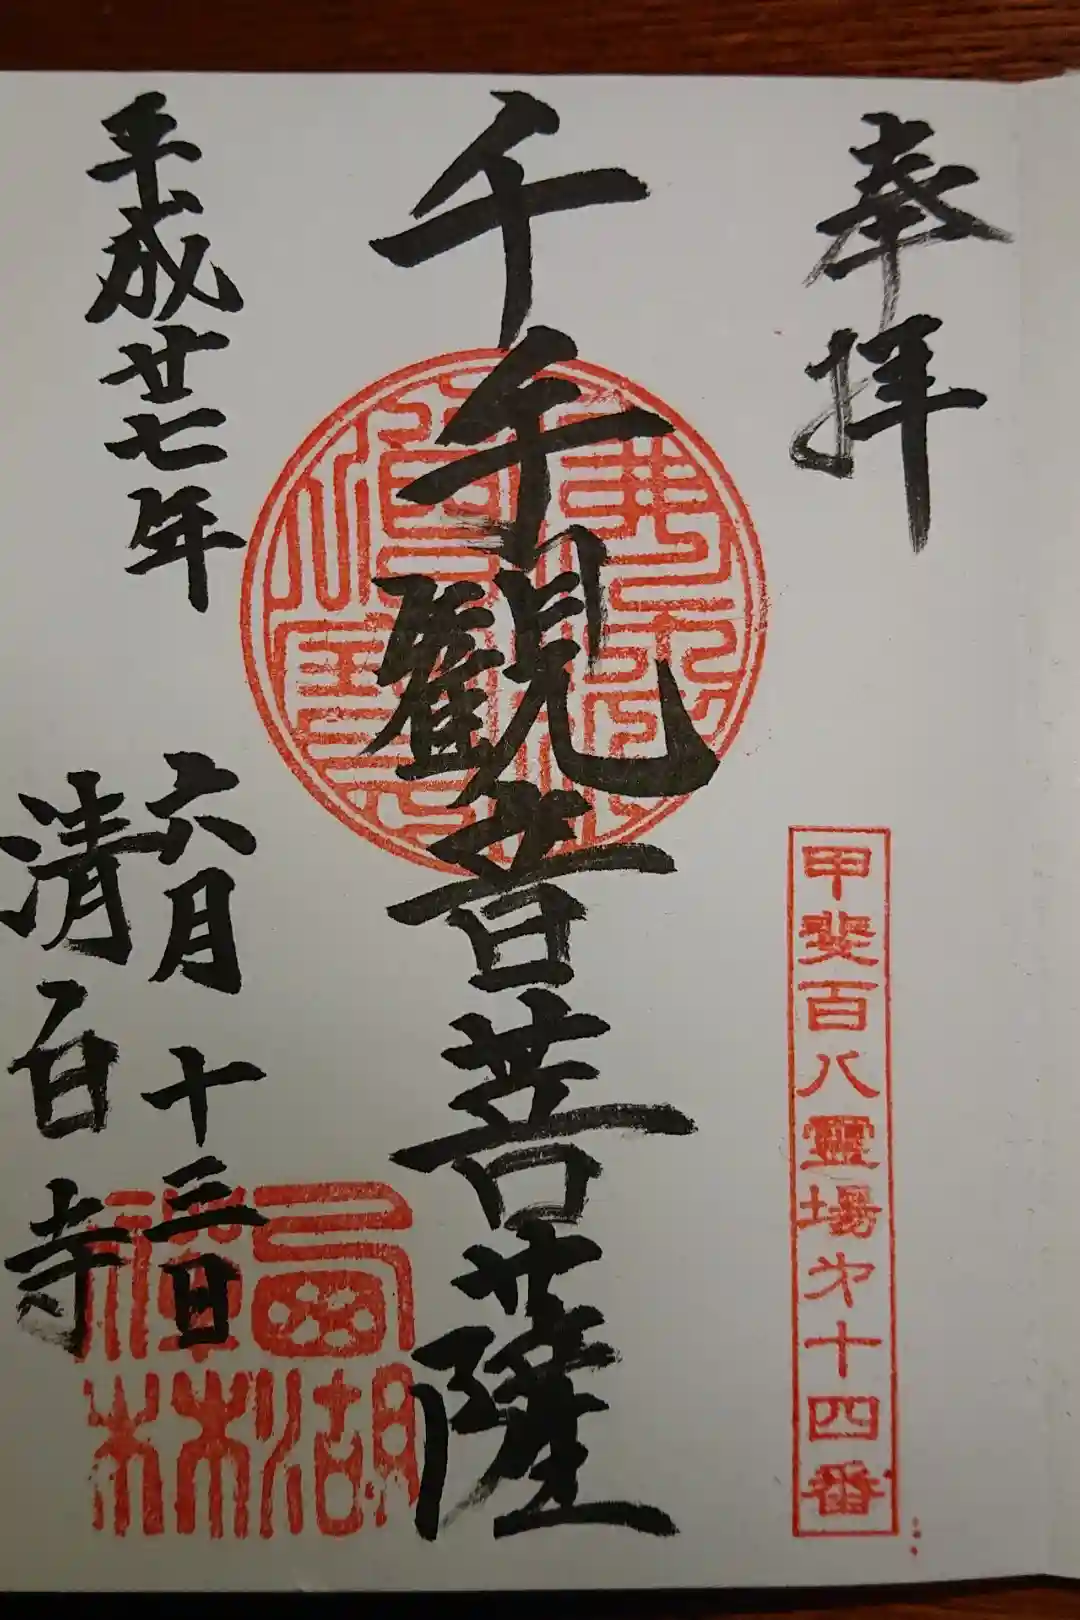 奉拝
甲斐百八靈場第十四番
千手觀音菩薩
平成廿七年 六月十三日
清白寺